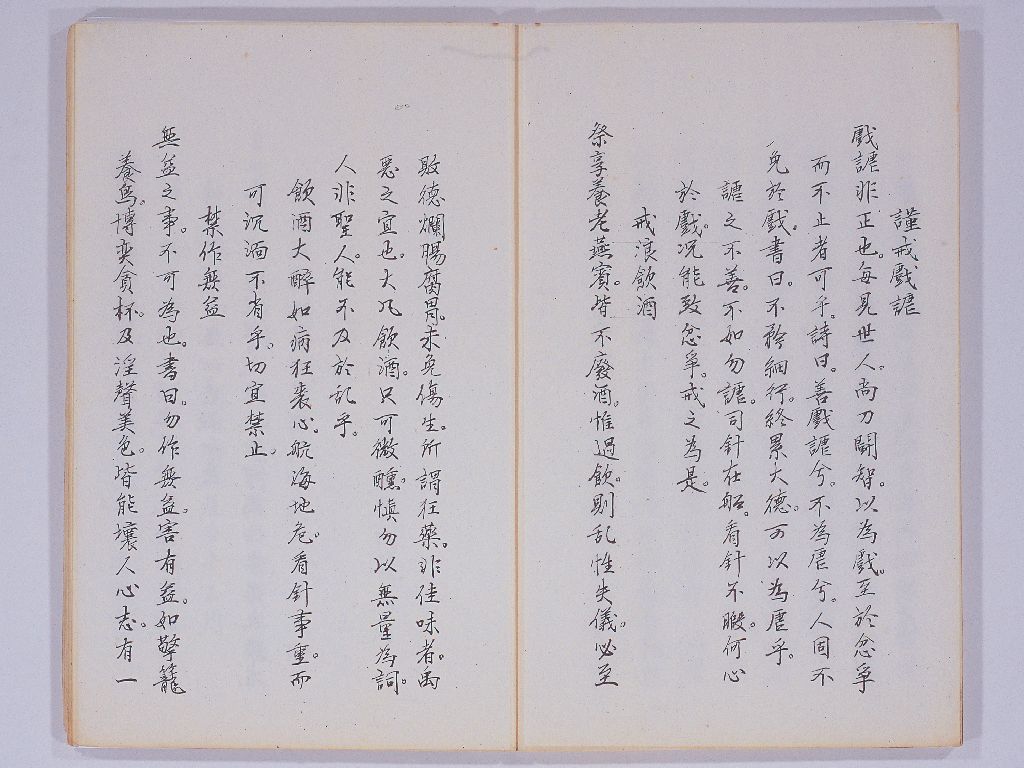 謹戒戲謔
戲謔非正也。每見世人。尚刀鬪智。以為戲。至於忿爭
而不止者可乎。詩曰。善戲謔兮。不為虐兮。人固不
免於戲。書曰。不矜細行。終累大德。可以為虐乎。
謔之不善。不如勿謔。司針在船。看針不暇。何心
於戲。况能致忿爭。戒之為是。
戒浪飲酒
祭享養老燕賓。皆不廢酒。惟過飲。則乱性失儀。必至
敗德爛腸腐胃。未免傷生。所謂狂藥。非佳味者。禹
惡之宜也。大凡飲酒。只可微醺。慎勿以無量為詞。
人非聖人。能不及於乱乎。
飲酒大醉如病狂喪心。航海地危。看針事重。而
可沉湎不省乎。切宜禁止。
禁作無益
無益之事。不可為也。書曰。勿作無益。害有益。如擎籠
養鳥。博奕貪杯。及淫聲美色。皆能壞人心志。有一